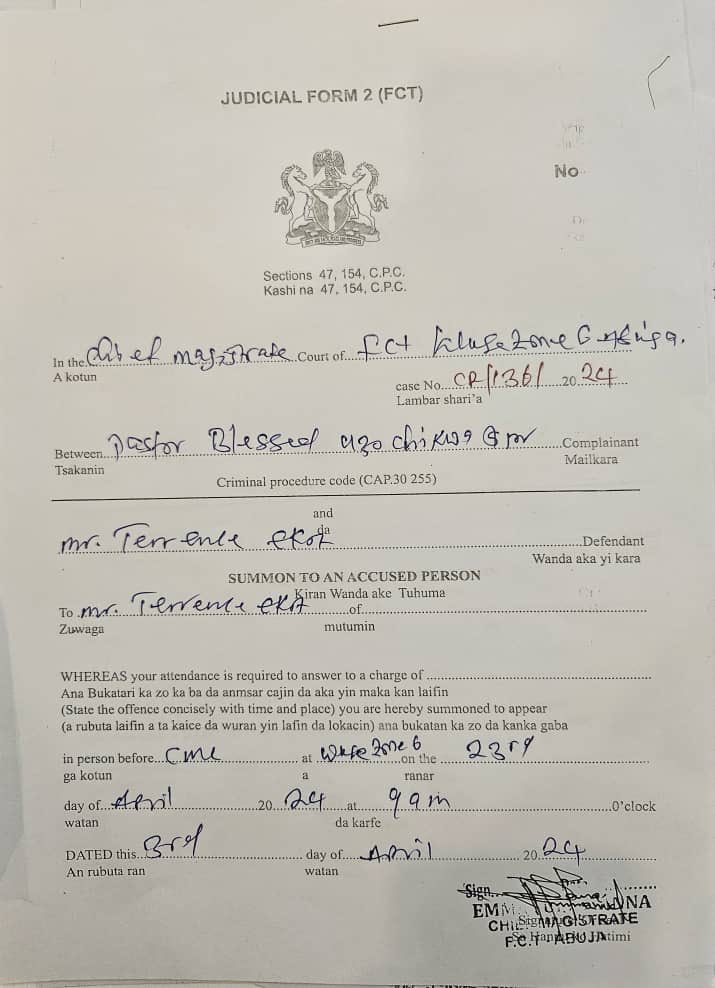 JUDICIAL FORM 2 (FCT)
No
Sections 47, 154, C.P.C.
Kashi na 47, 154, C.P.C.
In the Chief magistrate Court of FCT Wuse Zone 6 Abuja.
A kotun
case No. CR/136/ 2024
Lambar shari'a
Between Pastor Blessed Complainant
Tsakanin Mailkara
Criminal procedure code (CAP.30 255)
and
da
mr. Terrence Defendant
Wanda aka yi kara
SUMMON TO AN ACCUSED PERSON
Kiran Wanda ake Tuhuma
To mr. Terrence of
Zuwaga mutumin
WHEREAS your attendance is required to answer to a charge of
Ana Bukatari ka zo ka ba da anmsar cajin da aka yin maka kan laifin
(State the offence concisely with time and place) you are hereby summoned to appear
(a rubuta laifin a ta kaice da wuran yin lafin da lokacin) ana bukatan ka zo da kanka gaba
in person before CMC at Wuse Zone 6 on the 23rd
ga kotun a ranar
day of April 2024 at 9am O'clock
watan da karfe
DATED this 3rd day of April 2024
An rubuta ran watan
Sign
CHIEF MAGISTRATE
F.C.T. ABUJA